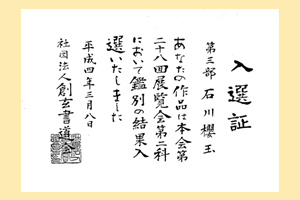 入選証
第三部 石川櫻玉
あなたの作品は本会第
二十八回展覧会第二科
において鑑別の結果入
選いたしました
平成四年三月八日
社団法人創玄書道会